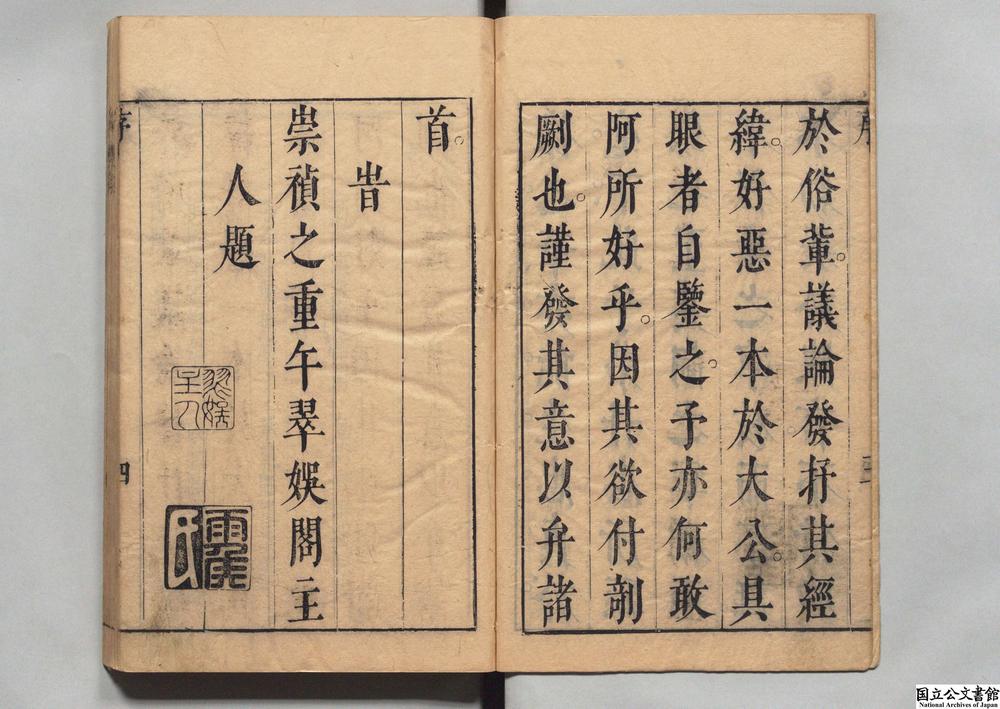 於俗軰。議論發抒其經
緯。好惡一本於大公。具
眼者自鑒之。予亦何敢
阿所好乎。因其欲付剞
劂也。謹發其意以弁諸
首。
旹
崇禎之重午翠娛閣主
人題
翠娛
主人
雨矦
氏
序
四
国立公文書館
National Archives of Japan